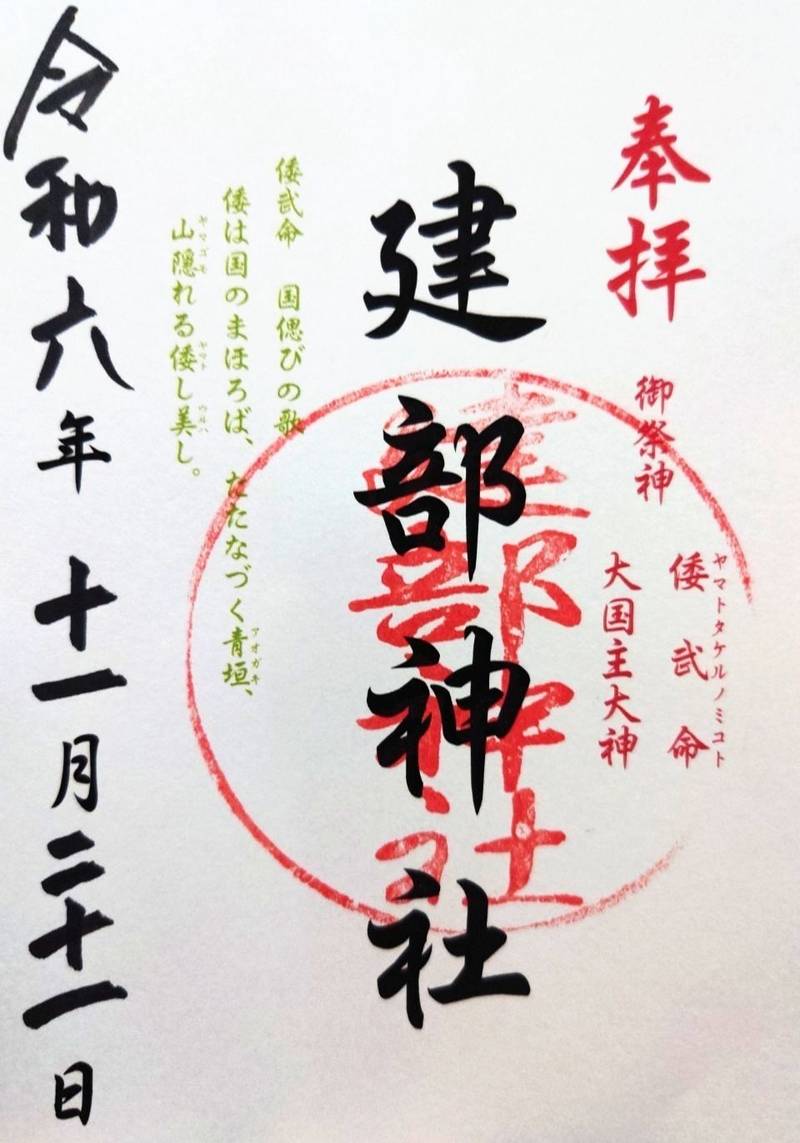 奉拝
御祭神
ヤマトタケルノミコト
倭武命
大国主大神
建部神社
建部神社
倭武命 国偲びの歌
倭は国のまほろば、たたなづく青垣、
アオガキ
山隠れる倭し美し。
ヤマゴモ ヤマト ウルハ
令和六年十一月二十一日